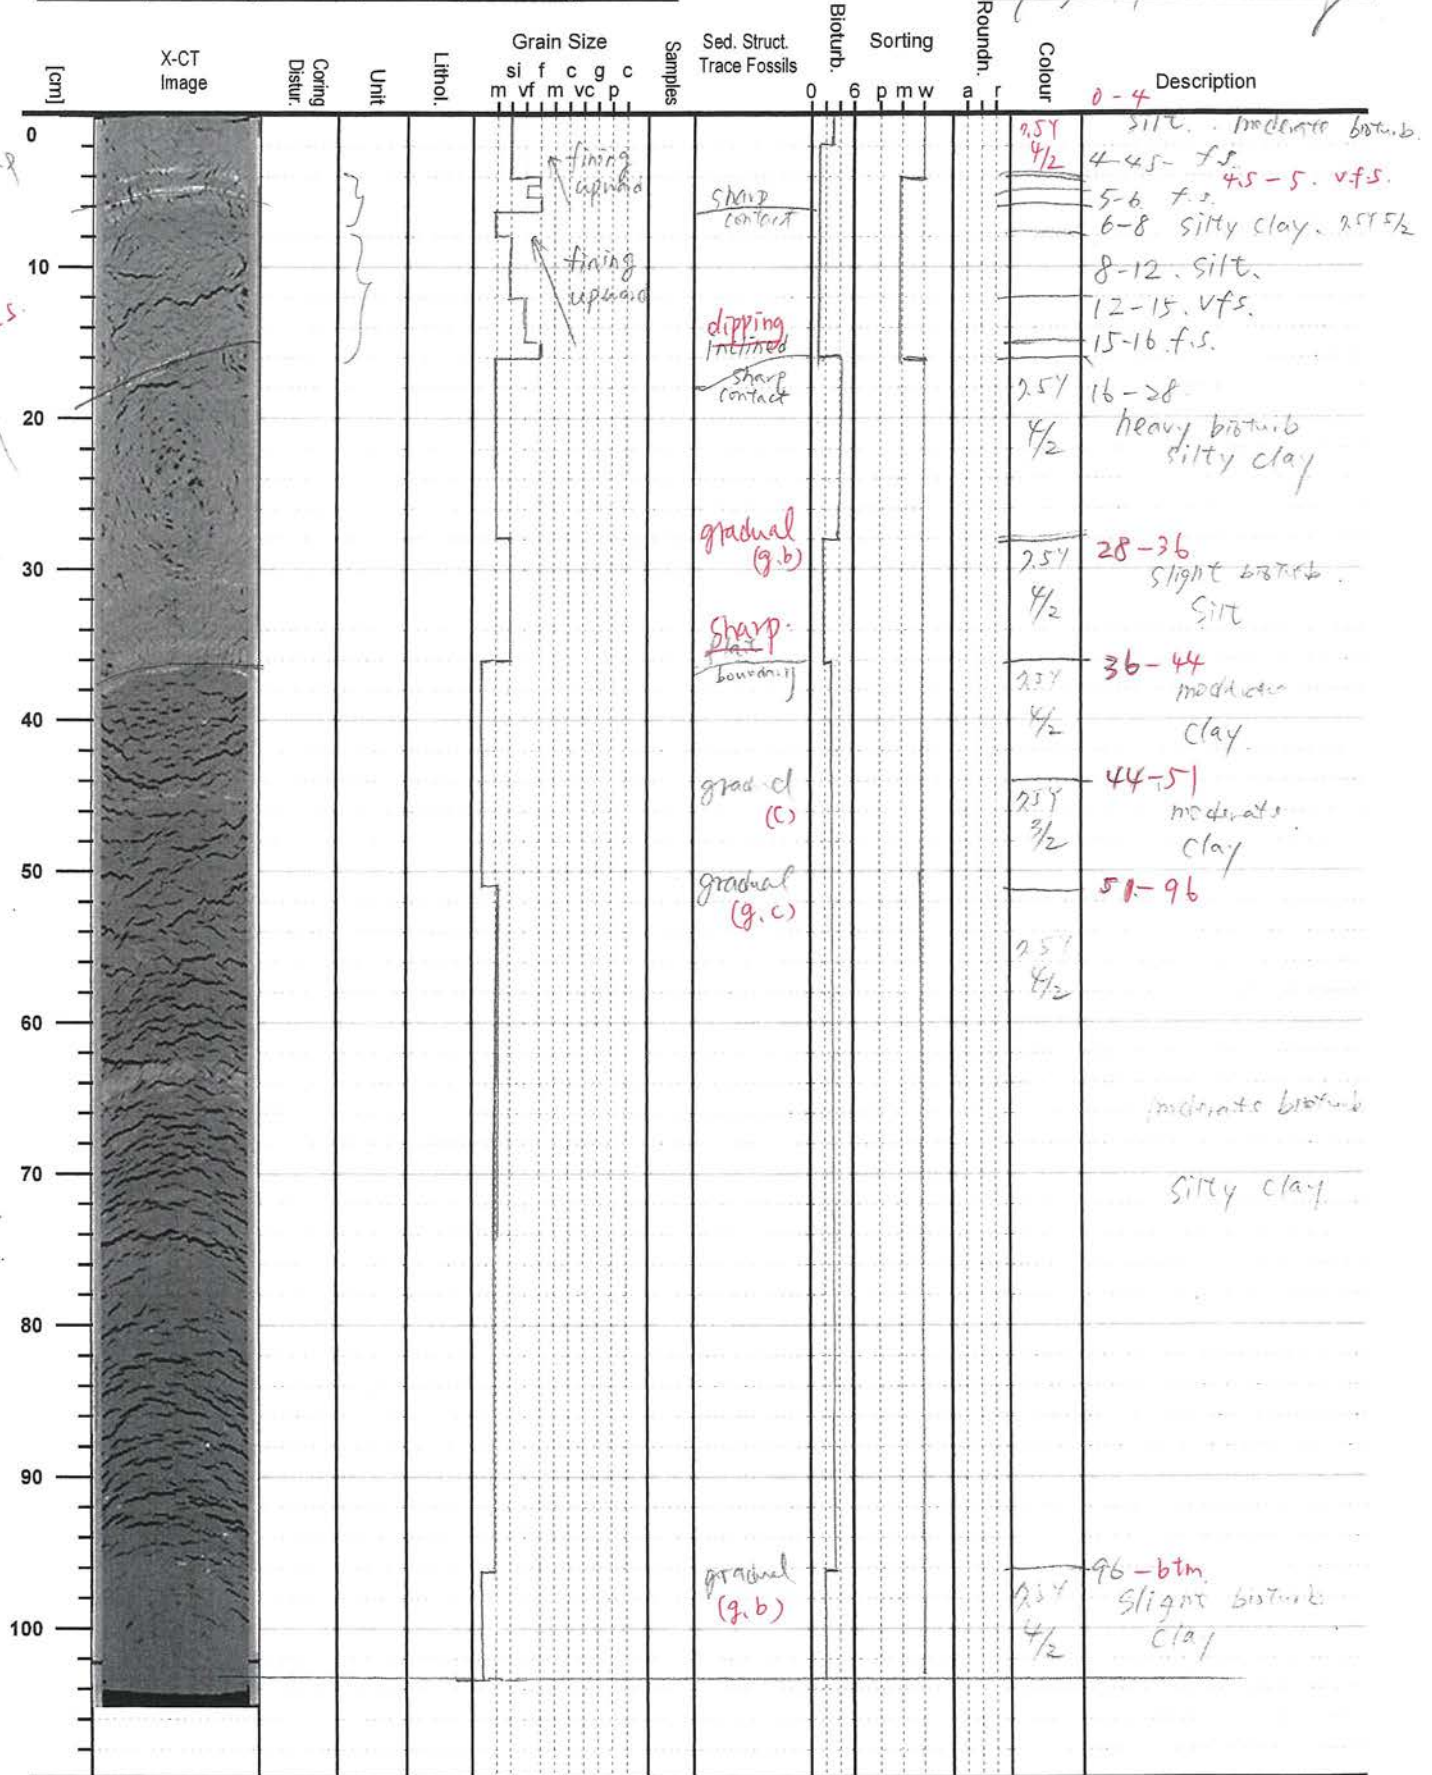 [cm]
X-CT
Image
Coring
Distur.
Unit
Lithol.
Grain Size
si f c g c
m vf m vc p
Samples
Sed. Struct.
Trace Fossils
Bioturb.
0 6
Sorting
p m w
Roundn.
a r
Colour
Description
0
10
20
30
40
50
60
70
80
90
100
fining
upward
fining
upward
sharp
contact
dipping
Inclined
sharp
contact
gradual
(g.b)
Sharp.
flat
boundary
(c)
gradual
(g.c)
gradual
(g.b)
0-4
2.5Y
4/2
silt. moderate bioturb.
4-4.5- f.s.
4.5-5. v.f.s.
5-6. f.s.
6-8 silty clay. 2.5Y 5/2
8-12. silt.
12-15. vfs.
15-16 f.s.
2.5Y
4/2
16-28
heavy bioturb
silty clay
2.5Y
4/2
28-36
slight bioturb.
silt
2.5Y
4/2
36-44
clay.
2.5Y
3/2
44-51
moderate
clay
51-96
2.5Y
4/2
moderate bioturb
silty clay.
96-btm
2.5Y
4/2
slight bioturb
clay